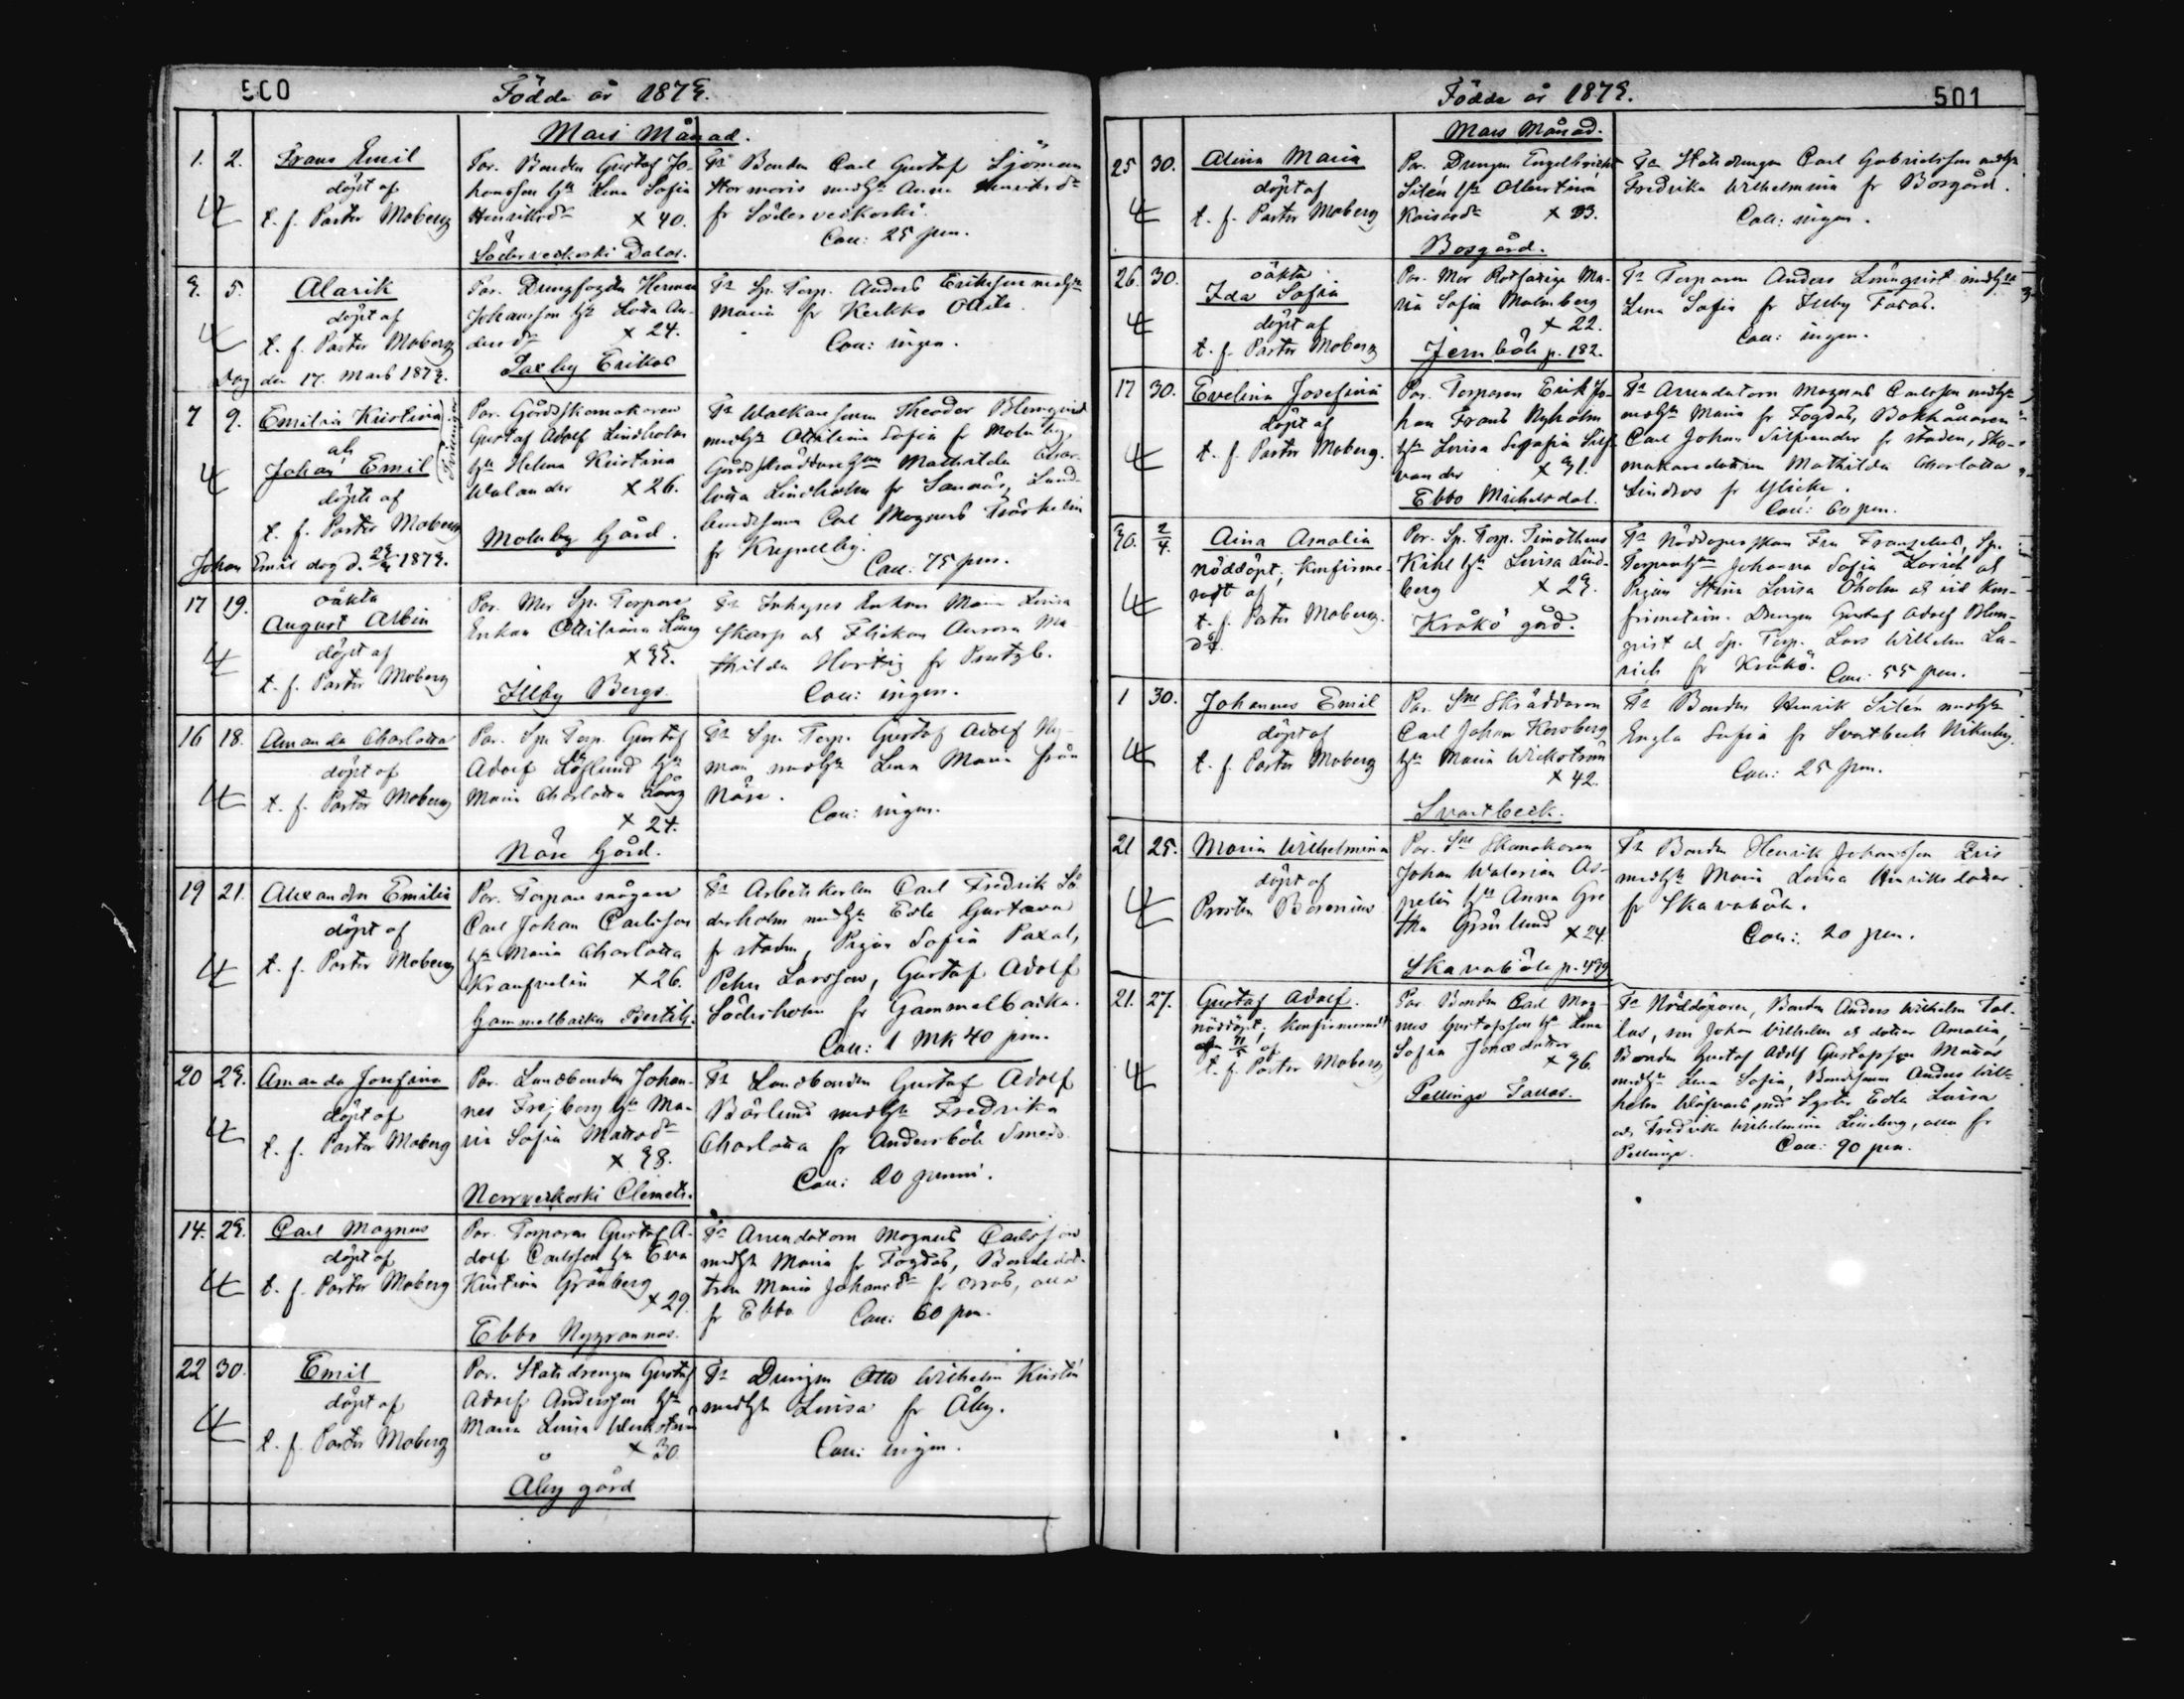 500
Födde år 1873.
Mars Månad.
1. 2. Frans Emil
döpt af
t. f. Pastor Moberg
Par. Bonden Gustaf Jo-
hansson hu Lena Sofia
Henriksdr x 40.
Söderveckoski Dalas.
Fr Bonden Carl Gustaf Sjöman
Stormoris med hu Anna Henriksdr
fr Söderveckoski.
Coll: 25 pen.
3. 5. Alarik
döpt af
t. f. Pastor Moberg
Dog den 17. Mars 1873.
Par. Drengfogden Herman
Johansson hu Lovisa An-
dersdr x 24.
Saxby Erikas
Fr Sp. Torp. Anders Eriksson med hu
Maria fr Kerkko Ollila.
Coll: ingen.
7 9. Emilia Kristina
ch
Johan Emil
döpte af
t. f. Pastor Moberg
Johan Emil dog d. 1873.
Par. Gårdsskomakaren
Gustaf Adolf Lindholm
hu Helena Kristina
Walander x 26.
Molnby Gård.
Theodor Blomqvist
med hu Ottiliana Sofia fr Molnby,
Mathilda Char-
lotta Lindholm fr Sannäs, Land-
Carl Magnus
fr Kreppelby.
Coll: 75 pen.
17 19. oäkta
August Albin
döpt af
t. f. Pastor Moberg
Par. Mor Sp. Torpare
Enkan Ottiliana Lång
x 33.
Illby Bergs.
Fr Inhyses Enkan Maria Lovisa
Skarp ch Flickan Aurora Ma
thilda Hertzig fr
Coll: ingen.
16 18. Amanda Charlotta
döpt af
t. f. Pastor Moberg
Par. Sp. Torp. Gustaf
Adolf Löflund hu
Maria Charlotta Lång
x 24.
Näse Gård.
Fr Sp. Torp. Gustaf Adolf Ny-
man med hu Lena Maria från
Näse.
Coll: ingen.
19 21. Alexandra Emilia
döpt af
t. f. Pastor Moberg
Par. Torpare mågen
Carl Johan Carlsson
hu Maria Charlotta
Kranfvelin x 26.
Gammelbacka Bertils.
Fr Arbetskarlen Carl Fredrik Sö
derholm med hu Edla Gustava
fr staden, Pigan Sofia Paxal,
Pehr Larsson, Gustaf Adolf
Söderholm fr Gammelbacka.
Coll: 1 Mk 40 pen.
20 23. Amanda Josefina
döpt af
t. f. Pastor Moberg
Par. Landbonden Johan-
nes Frejberg hu Ma-
ria Sofia Mattsdr
x 38.
Norrveckoski Clemets.
Fr Landbonden Gustaf Adolf
Börlund med hu Fredrika
Charlotta fr Andersböle Smeds
Coll: 20 penni.
14. 23. Carl Magnus
döpt af
t. f. Pastor Moberg
Par. Torparen Gustaf A-
dolf Carlsson hu Eva
Kristina Grönberg
x 29.
Ebbo Nygrannas.
Fr Arrendatorn Magnus Carlsson
med hu Maria fr Fogdas, Bondedot-
tren Maria Johansdr fr Orras, alla
fr Ebbo. Coll: 60 pen.
22 30. Emil
döpt af
t. f. Pastor Moberg
Par. Statsdrengen Gustaf
Adolf Andersson hu
Maria Lovisa Weckström
x 30
Åby gård
Fr Drengen Otto Wilhelm Kirstin
med hu Lovisa fr Åby.
Coll: ingen.
Födde år 1873.
501
Mars Månad.
25 30. Alina Maria
döpt af
t. f. Pastor Moberg
Par. Drengen Engelbrecht
Silén hu Albertina
Kaisasdr x 23.
Bosgård.
Fr Statsdrengen Carl Gabrielsson med hu
Fredrika Wilhelmina fr Bosgård.
Coll: ingen.
26. 30. oäkta
Ida Sofia
döpt af
t. f. Pastor Moberg
Par. Mor Rotfattige Ma-
ria Sofia Malmberg
x 22.
Jernböle p. 182.
Fr Torparen Anders Lönnqvist med hu
Lena Sofia fr Illby Faras.
Coll: ingen.
17 30. Evelina Josefina
döpt af
t. f. Pastor Moberg.
Par. Torparen Erik Jo-
han Frans Nyholm
hu Lovisa Silf-
vander x 31.
Ebbo Mickelsdal.
Fr Arrendatorn Magnus Carlsson med hu
Maria fr Fogdas, Bokhållaren
Carl Johan Silfvander fr staden, Sko-
makaredottren Mathilda Charlotta
Lindros fr Ylicke.
Coll: 60 pen.
30. 2/4. Aina Amalia
nöddöpt; Konfirme-
radt af
t. f. Pastor Moberg.
Par. Sp. Torp. Timotheus
Kihl hu Lovisa Lind-
berg x 23.
Kråkö gård.
Fr Nöddoperskan Fru Franzelius, Sp.
Torparehu Johanna Sofia Lorich ch
Pigan Stina Lovisa Öholm ch vid kon-
firmation. Drengen Gustaf Adolf Blom-
qvist ch Sp. Torp. Lars Wilhelm La-
rich fr Kråkö. Coll: 55 pen.
1 30. Johannes Emil
döpt af
t. f. Pastor Moberg
Par. Sne Skräddaren
Carl Johan Korsberg
hu Maria Wickström
x 42.
Svartbeck.
Fr Bonden Henrik Silén med hu
Engla Sofia fr Svartbeck Nikuby.
Coll: 25 pen.
21 25. Maria Wilhelmina
döpt af
Prosten Borenius
Par. Sne Skomakaren
Johan Walerian As-
pelin hu Anna Gre
tha Grönlund x 24.
Skavaböle p. 439
Fr Bonden Henrik Johansson Pris
med hu Maria Lovisa Henriksdotter
fr Skavaböle.
Coll: 20 pen.
21. 27. Gustaf Adolf.
nöddöpt; Konfirmeradt
af
t. f. Pastor Moberg
Par. Bonden Carl Mag-
nus Gustafsson hu Lena
Sofia Jonasdotter
x 36.
Pellinge Tallas.
Fr Nöddöparen, Bonden Anders Wilhelm Tal-
las, son Johan Wilhelm ch dotter Amalia,
Bonden Gustaf Adolf Gustafsson Mattas
med hu Lena Sofia, Bondesonen Anders Wil-
helm med Syster Edla Lovisa
ch Fredrika Wilhelmina Lindberg, alla fr
Pellinge. Coll: 90 pen.